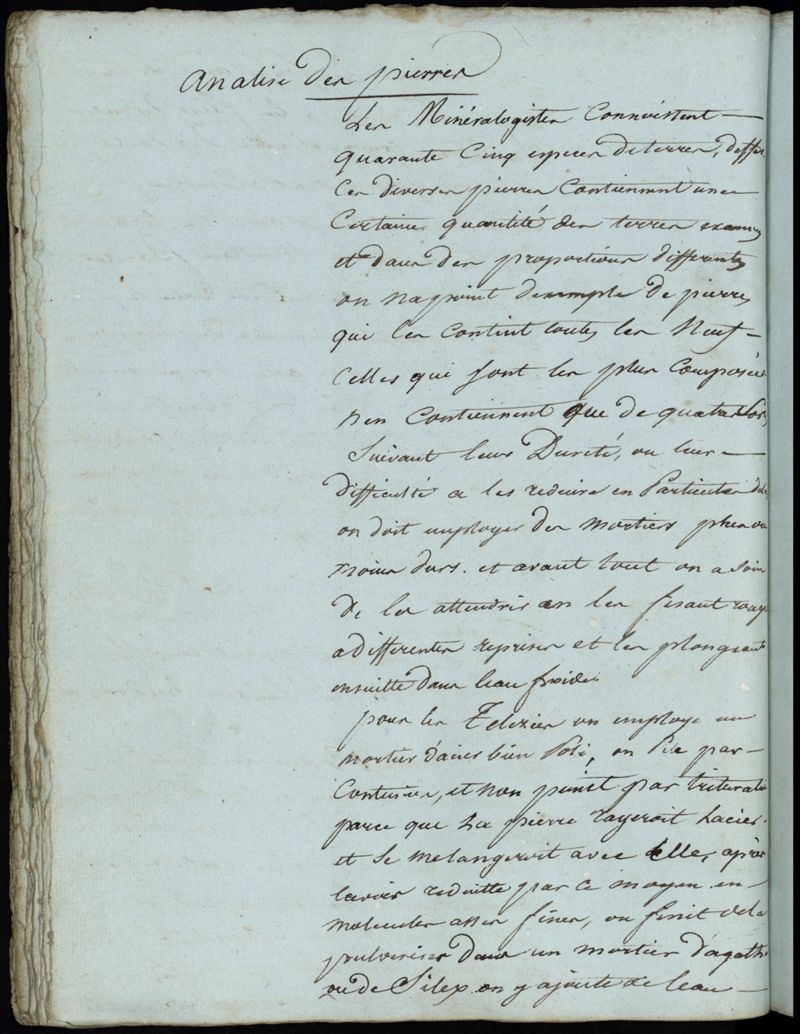 Analise des pierres
Les Minéralogistes Connoissent
quarante Cinq especes de terres,
Ces diverses pierres Contiennent une
Certaine quantité des terres
et dans des proportions differentes
on na point dexemple de pierres
qui les Contint toutes les Neuf
Celles qui sont les plus Composées
nen Contiennent que de quatre
Suivant leurs Dureté, ou leur
difficulté a les reduire en Particules
on doit employer des mortiers plus ou
moins durs. et avant tout on a soin
de les attendrir en les fesant rougir
a differentes reprises et les plongeant
ensuitte dans leau froide
pour les Telesies on employe un
mortier dacier bien Poli, on Pile par
Contusion, et non point par trituration
parce que La pierre rayeroit Lacier
et Se melangeroit avec Elle, après
lavoir reduitte par ce moyen en
molecules asses fines, on finit de la
pulveriser dans un mortier d'agathe
ou de Silex on y ajoute de leau